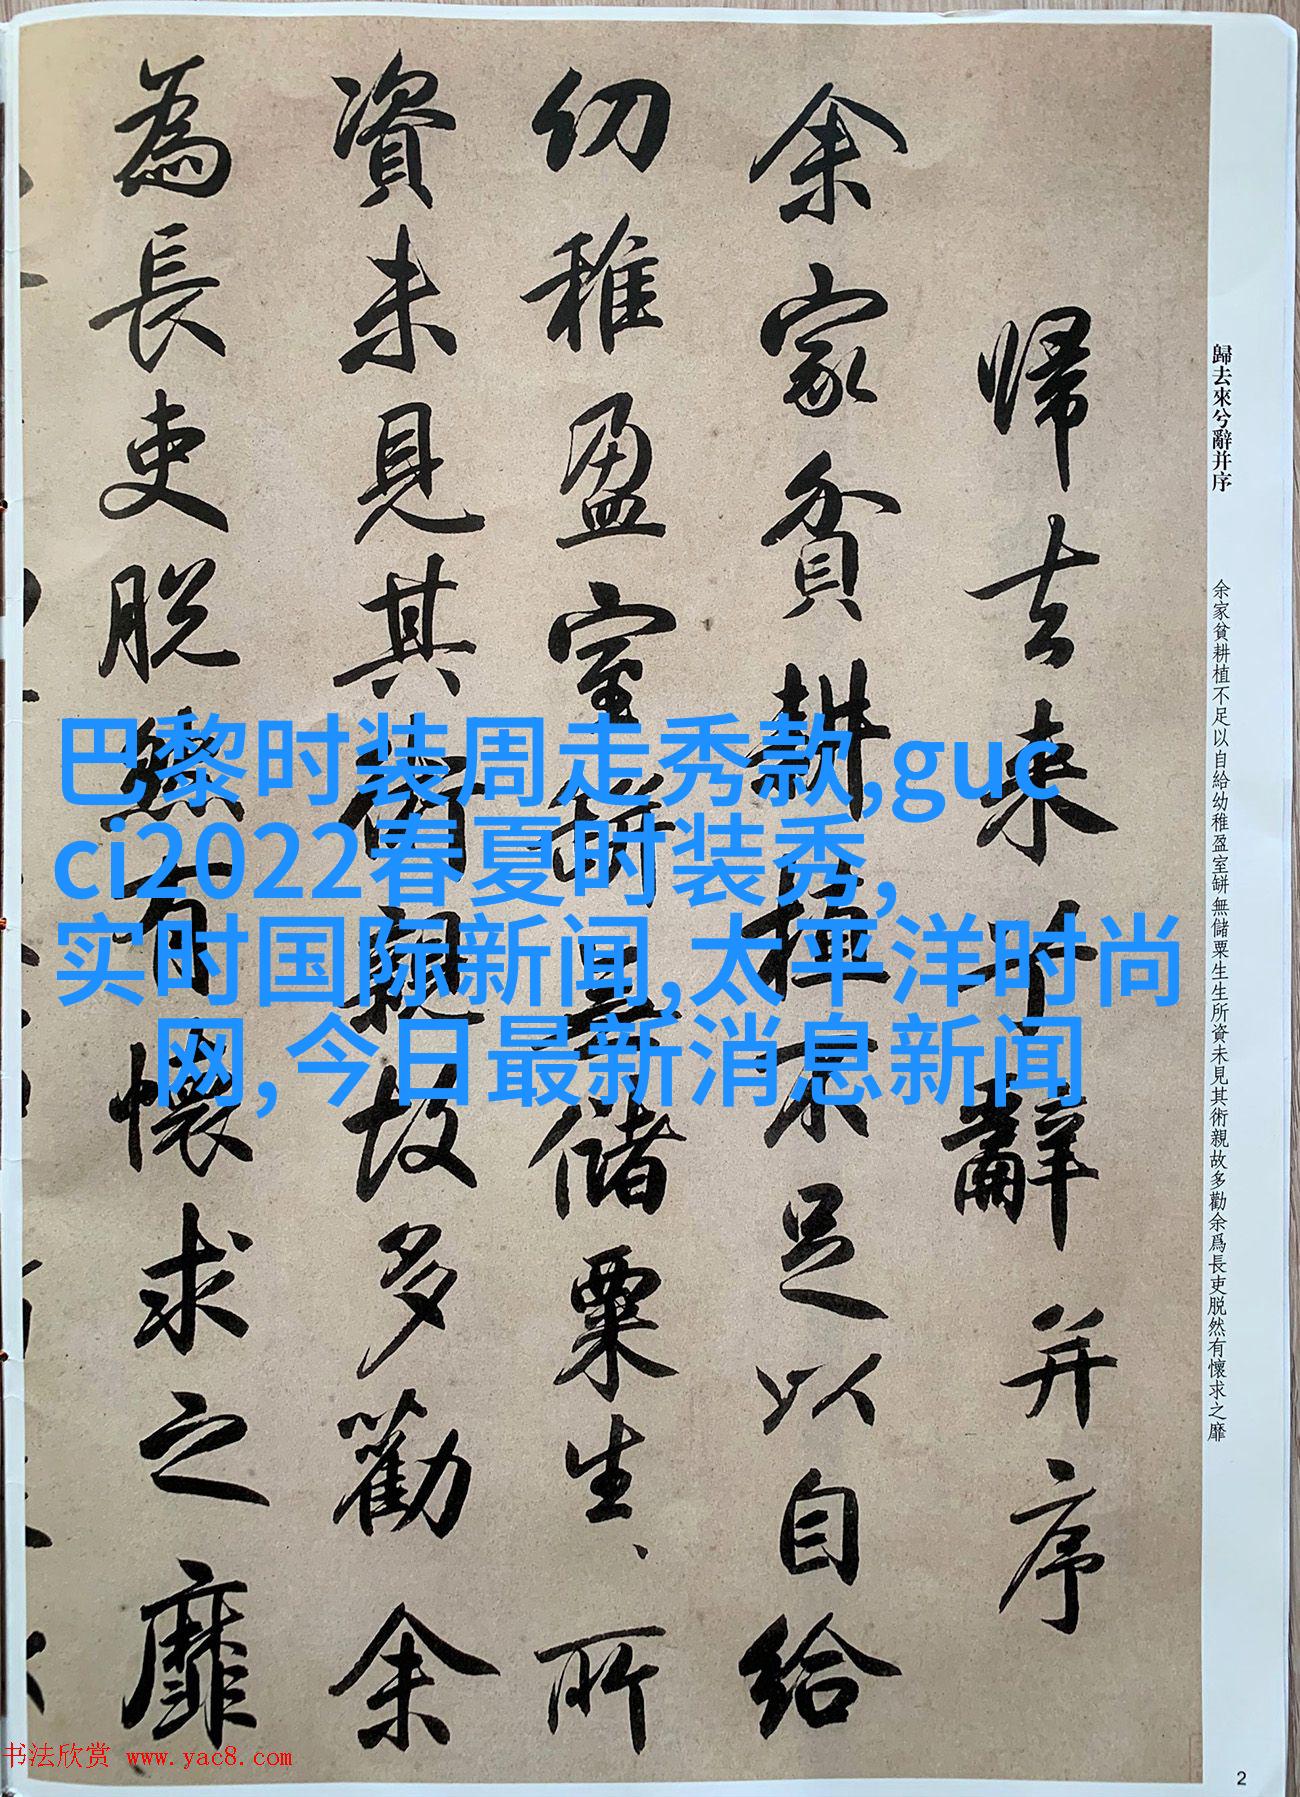 歸去來兮辭并序
余家貧耕植不足以自給幼稚盈室缾無儲粟生生所資未見其術親故多勸余爲長吏脱然有懷求之靡
帰去来兮辭并序
余家貧耕植不足以自給
幼稚盈室缾無儲粟生、所
資未見其術親故多勸余
為長吏脱然有懷求之靡
巴黎时装周走秀款,guc
ci2022春夏时装秀,
实时国际新闻,太平洋时尚
网,今日最新消息新闻
书法欣赏 www.yac8.com
2